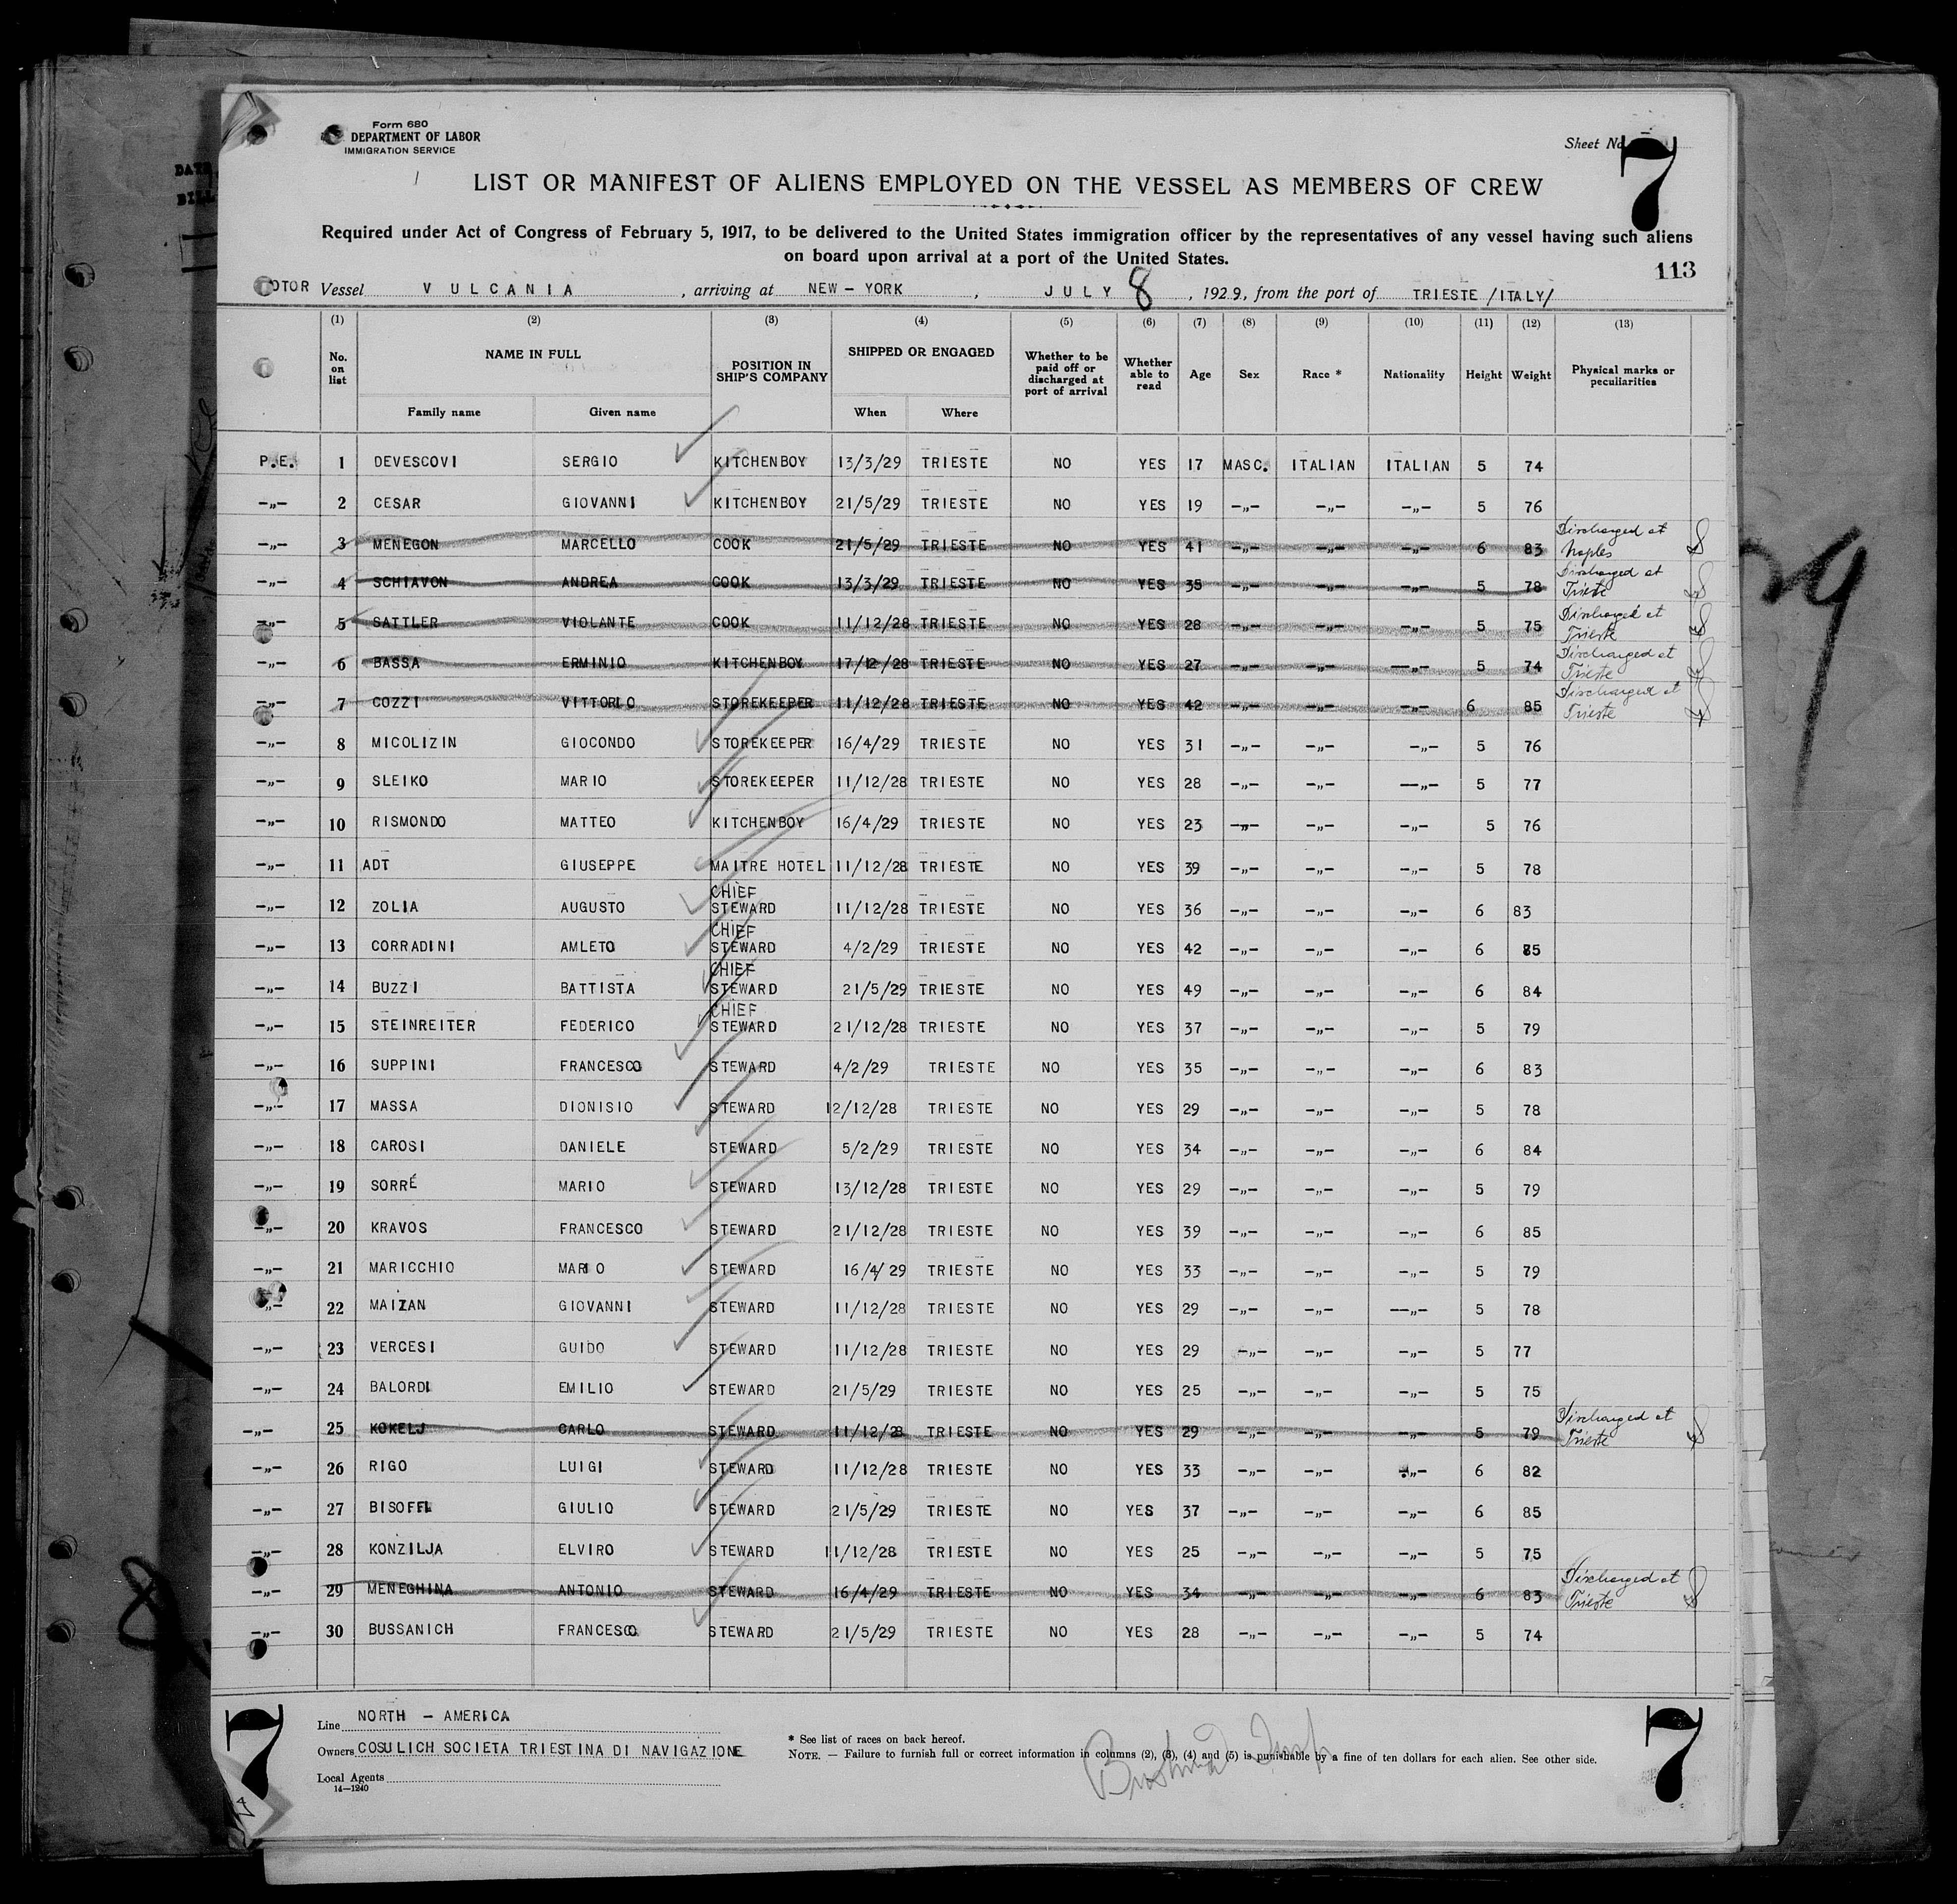 Form 680
DEPARTMENT OF LABOR
IMMIGRATION SERVICE
Sheet No. 7
LIST OR MANIFEST OF ALIENS EMPLOYED ON THE VESSEL AS MEMBERS OF CREW
Required under Act of Congress of February 5, 1917, to be delivered to the United States immigration officer by the representatives of any vessel having such aliens
on board upon arrival at a port of the United States.
113
OTOR Vessel VULCANIA, arriving at NEW-YORK, JULY 8, 1929, from the port of TRIESTE /ITALY/
(1) (2) (3) (4) (5) (6) (7) (8) (9) (10) (11) (12) (13)
No. on list NAME IN FULL POSITION IN SHIP'S COMPANY SHIPPED OR ENGAGED Whether to be paid off or discharged at port of arrival Whether able to read Age Sex Race * Nationality Height Weight Physical marks or peculiarities
Family name Given name When Where
P.E. 1 DEVESCOVI SERGIO KITCHENBOY 13/3/29 TRIESTE NO YES 17 MASC. ITALIAN ITALIAN 5 74
-„- 2 CESAR GIOVANNI KITCHENBOY 21/5/29 TRIESTE NO YES 19 -„- -„- -„- 5 76
-„- 3 MENEGON MARCELLO COOK 21/5/29 TRIESTE NO YES 41 -„- -„- -„- 6 83 Discharged at Naples
-„- 4 SCHIAVON ANDREA COOK 13/3/29 TRIESTE NO YES 35 -„- -„- -„- 5 78 Discharged at Trieste
-„- 5 SATTLER VIOLANTE COOK 11/12/28 TRIESTE NO YES 28 -„- -„- -„- 5 75 Discharged at Trieste
-„- 6 BASSA ERMINIO KITCHENBOY 17/12/28 TRIESTE NO YES 27 -„- -„- -„- 5 74 Discharged at Trieste
-„- 7 COZZI VITTORIO STOREKEEPER 11/12/28 TRIESTE NO YES 42 -„- -„- -„- 6 85 Discharged at Trieste
-„- 8 MICOLIZIN GIOCONDO STOREKEEPER 16/4/29 TRIESTE NO YES 31 -„- -„- -„- 5 76
-„- 9 SLEIKO MARIO STOREKEEPER 11/12/28 TRIESTE NO YES 28 -„- -„- -„- 5 77
-„- 10 RISMONDO MATTEO KITCHENBOY 16/4/29 TRIESTE NO YES 23 -„- -„- -„- 5 76
-„- 11 ADT GIUSEPPE MAITRE HOTEL 11/12/28 TRIESTE NO YES 39 -„- -„- -„- 5 78
-„- 12 ZOLIA AUGUSTO CHIEF STEWARD 11/12/28 TRIESTE NO YES 36 -„- -„- -„- 6 83
-„- 13 CORRADINI AMLETO CHIEF STEWARD 4/2/29 TRIESTE NO YES 42 -„- -„- -„- 6 85
-„- 14 BUZZI BATTISTA CHIEF STEWARD 21/5/29 TRIESTE NO YES 49 -„- -„- -„- 6 84
-„- 15 STEINREITER FEDERICO CHIEF STEWARD 21/12/28 TRIESTE NO YES 37 -„- -„- -„- 5 79
-„- 16 SUPPINI FRANCESCO STEWARD 4/2/29 TRIESTE NO YES 35 -„- -„- -„- 6 83
-„- 17 MASSA DIONISIO STEWARD 12/12/28 TRIESTE NO YES 29 -„- -„- -„- 5 78
-„- 18 CAROSI DANIELE STEWARD 5/2/29 TRIESTE NO YES 34 -„- -„- -„- 6 84
-„- 19 SORRÉ MARIO STEWARD 13/12/28 TRIESTE NO YES 29 -„- -„- -„- 5 79
-„- 20 KRAVOS FRANCESCO STEWARD 21/12/28 TRIESTE NO YES 39 -„- -„- -„- 6 85
-„- 21 MARICCHIO MARIO STEWARD 16/4/29 TRIESTE NO YES 33 -„- -„- -„- 5 79
-„- 22 MAIZAN GIOVANNI STEWARD 11/12/28 TRIESTE NO YES 29 -„- -„- -„- 5 78
-„- 23 VERCESI GUIDO STEWARD 11/12/28 TRIESTE NO YES 29 -„- -„- -„- 5 77
-„- 24 BALORDI EMILIO STEWARD 21/5/29 TRIESTE NO YES 25 -„- -„- -„- 5 75
-„- 25 KOKELJ CARLO STEWARD 11/12/28 TRIESTE NO YES 29 -„- -„- -„- 5 79 Discharged at Trieste
-„- 26 RIGO LUIGI STEWARD 11/12/28 TRIESTE NO YES 33 -„- -„- -„- 6 82
-„- 27 BISOFFI GIULIO STEWARD 21/5/29 TRIESTE NO YES 37 -„- -„- -„- 6 85
-„- 28 KONZILJA ELVIRO STEWARD 11/12/28 TRIESTE NO YES 25 -„- -„- -„- 5 75
-„- 29 MENEGHINA ANTONIO STEWARD 16/4/29 TRIESTE NO YES 34 -„- -„- -„- 6 83 Discharged at Trieste
-„- 30 BUSSANICH FRANCESCO STEWARD 21/5/29 TRIESTE NO YES 28 -„- -„- -„- 5 74
7
Line NORTH - AMERICA
Owners COSULICH SOCIETA TRIESTINA DI NAVIGAZIONE
Local Agents
14—1240
* See list of races on back hereof.
NOTE. — Failure to furnish full or correct information in columns (2), (3), (4) and (5) is punishable by a fine of ten dollars for each alien. See other side.
7